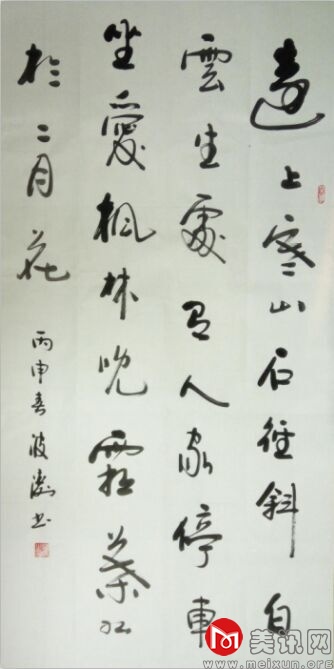 遠上寒山石徑斜白
雲生處有人家停車
坐愛楓林晚霜葉红
於二月花
丙申春波濤书
美讯网